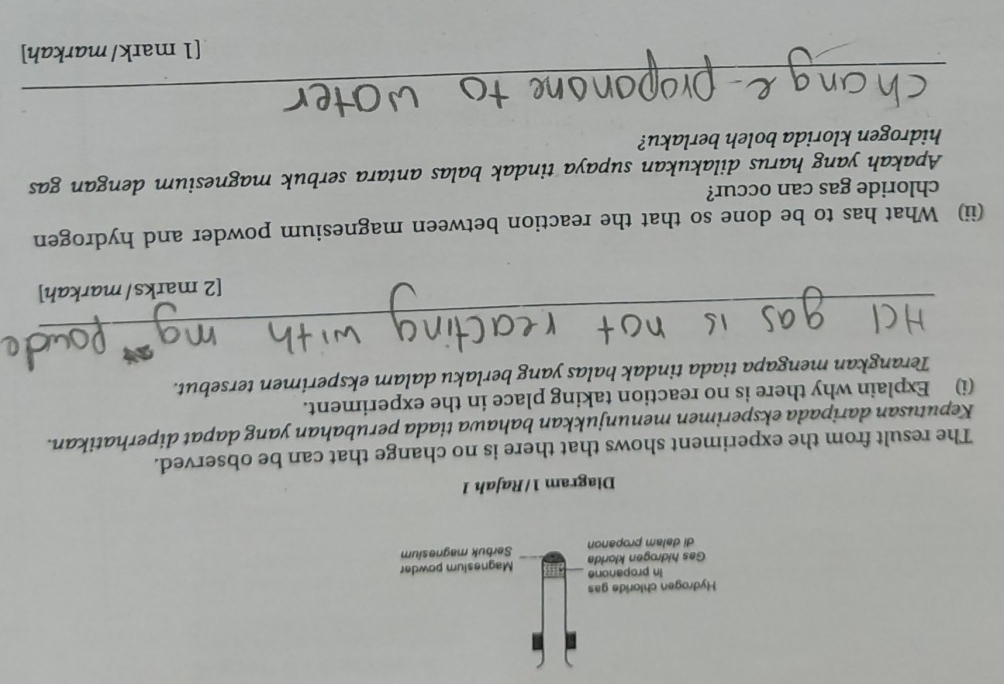 Hydrogen chloride gas
in propanone
Gas hidrogen klorida
di dalam propanon
Magnesium powder
Serbuk magnesium
Diagram 1/Rajah 1
The result from the experiment shows that there is no change that can be observed.
Keputusan daripada eksperimen menunjukkan bahawa tiada perubahan yang dapat diperhatikan.
(i) Explain why there is no reaction taking place in the experiment.
Terangkan mengapa tiada tindak balas yang berlaku dalam eksperimen tersebut.
HCl gas is not reacting with mg powde
[2 marks/markah]
(ii) What has to be done so that the reaction between magnesium powder and hydrogen
chloride gas can occur?
Apakah yang harus dilakukan supaya tindak balas antara serbuk magnesium dengan gas
hidrogen klorida boleh berlaku?
change propanone to water
[1 mark/markah]